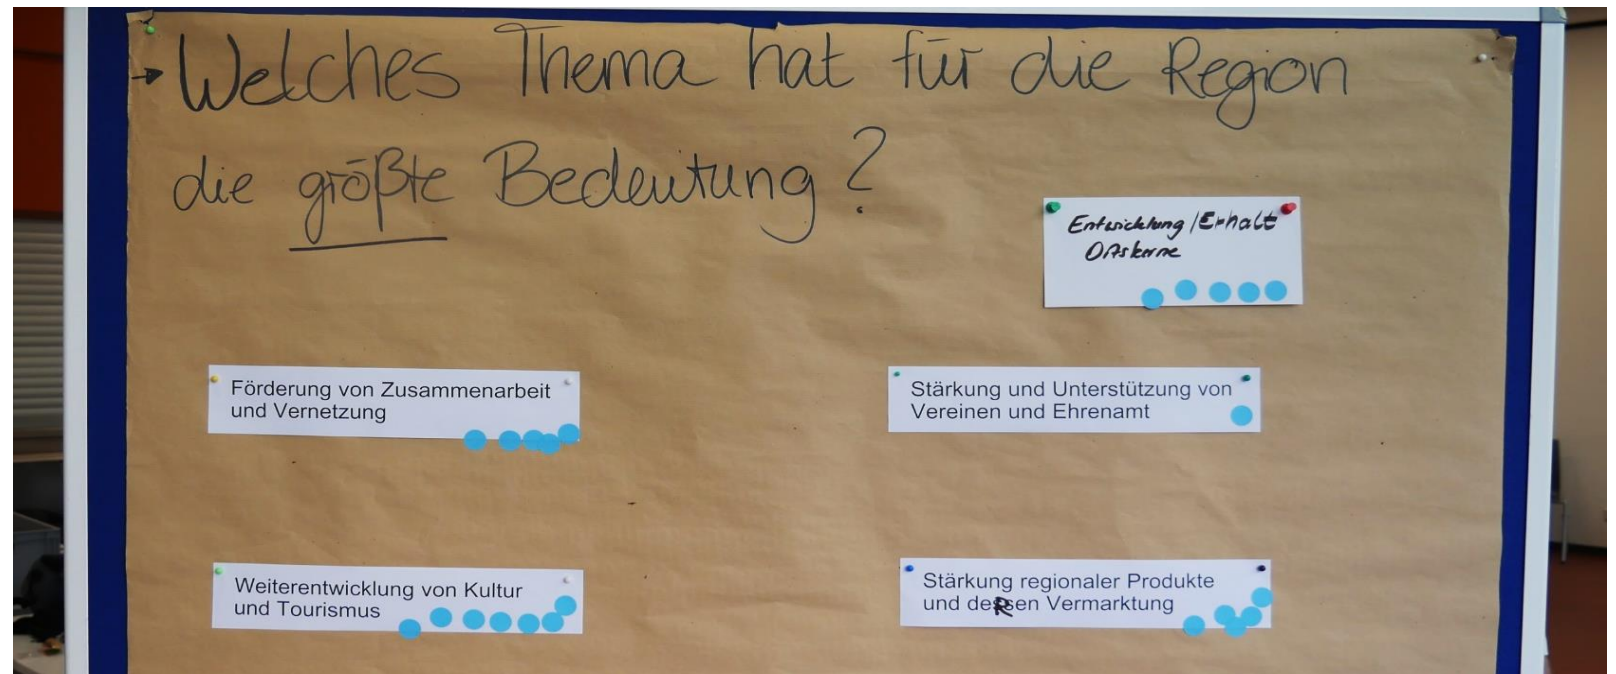 → Welches Thema hat für die Region
die größte Bedeutung?
Entwicklung/Erhalt
Ortskerne
Förderung von Zusammenarbeit
und Vernetzung
Stärkung und Unterstützung von
Vereinen und Ehrenamt
Weiterentwicklung von Kultur
und Tourismus
Stärkung regionaler Produkte
und deRen Vermarktung